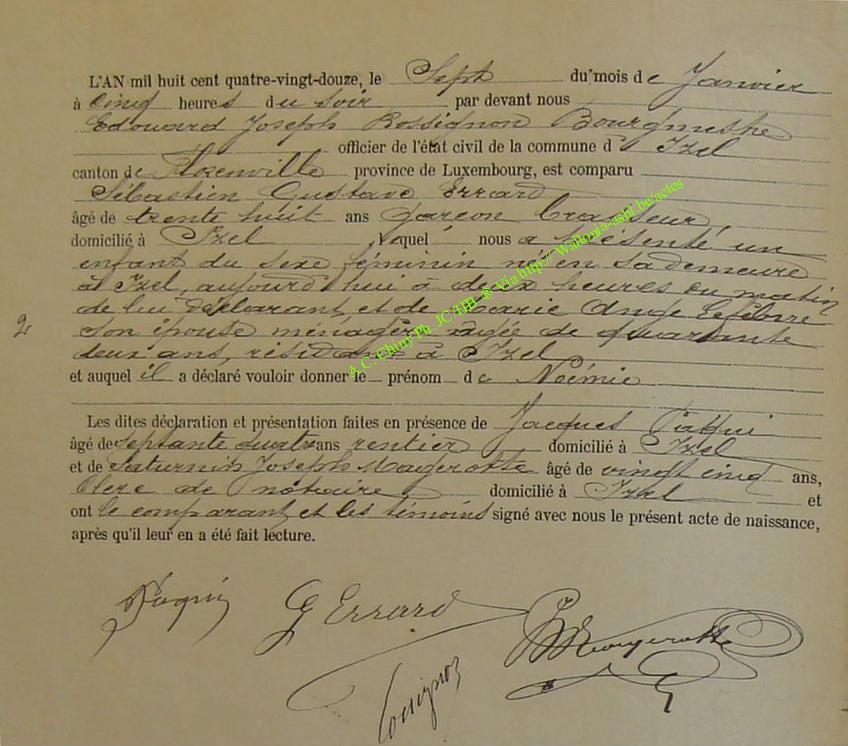 L'AN mil huit cent quatre-vingt-douze, le Sept du mois de Janvier
à Cinq heures du soir par devant nous
Edouard Joseph Rossignon Bourgmestre
officier de l'état civil de la commune d' Izel
canton de Florenville province de Luxembourg, est comparu
Sébastien Gustave Errard
âgé de trente huit ans garçon brasseur
domicilié à Izel lequel nous a présenté un
enfant du sexe féminin né en sa demeure
à Izel, aujourd'hui à deux heures du matin
de lui déclarant, et de Marie Ange Lefèbvre
2
son épouse ménagère âgée de quarante
deux ans, résidant à Izel
et auquel il a déclaré vouloir donner le prénom de Noémie
Les dites déclaration et présentation faites en présence de Jacques
âgé de septante quatre ans rentier domicilié à Izel
et de Saturnin Joseph Maugerotte âgé de vingt cinq ans,
Clerc de notaire domicilié à Izel et
ont le comparant et les témoins signé avec nous le présent acte de naissance,
après qu'il leur en a été fait lecture.
G Errard
Maugerotte
Rossignon
A.C. Chiny Ph JC HB ® Via http:// Wallonia-asbl.be/actes